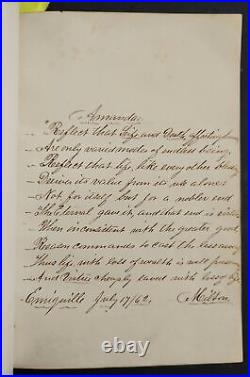 Amanda.
"Reflect that Life and Death, affecting
– Are only varied modes of endless being,
– Reflect that life, like every other
– Derives its value from its use alone;
– Not for itself but for a nobler end
– Th' Eternal gave it, and that end is
– When inconsistent with the greater good,
Reason commands to cast the less away
Thus life with loss of wealth is well
– And Virtue cheaply saved with loss of
Emigsville July 17/62.
Milton